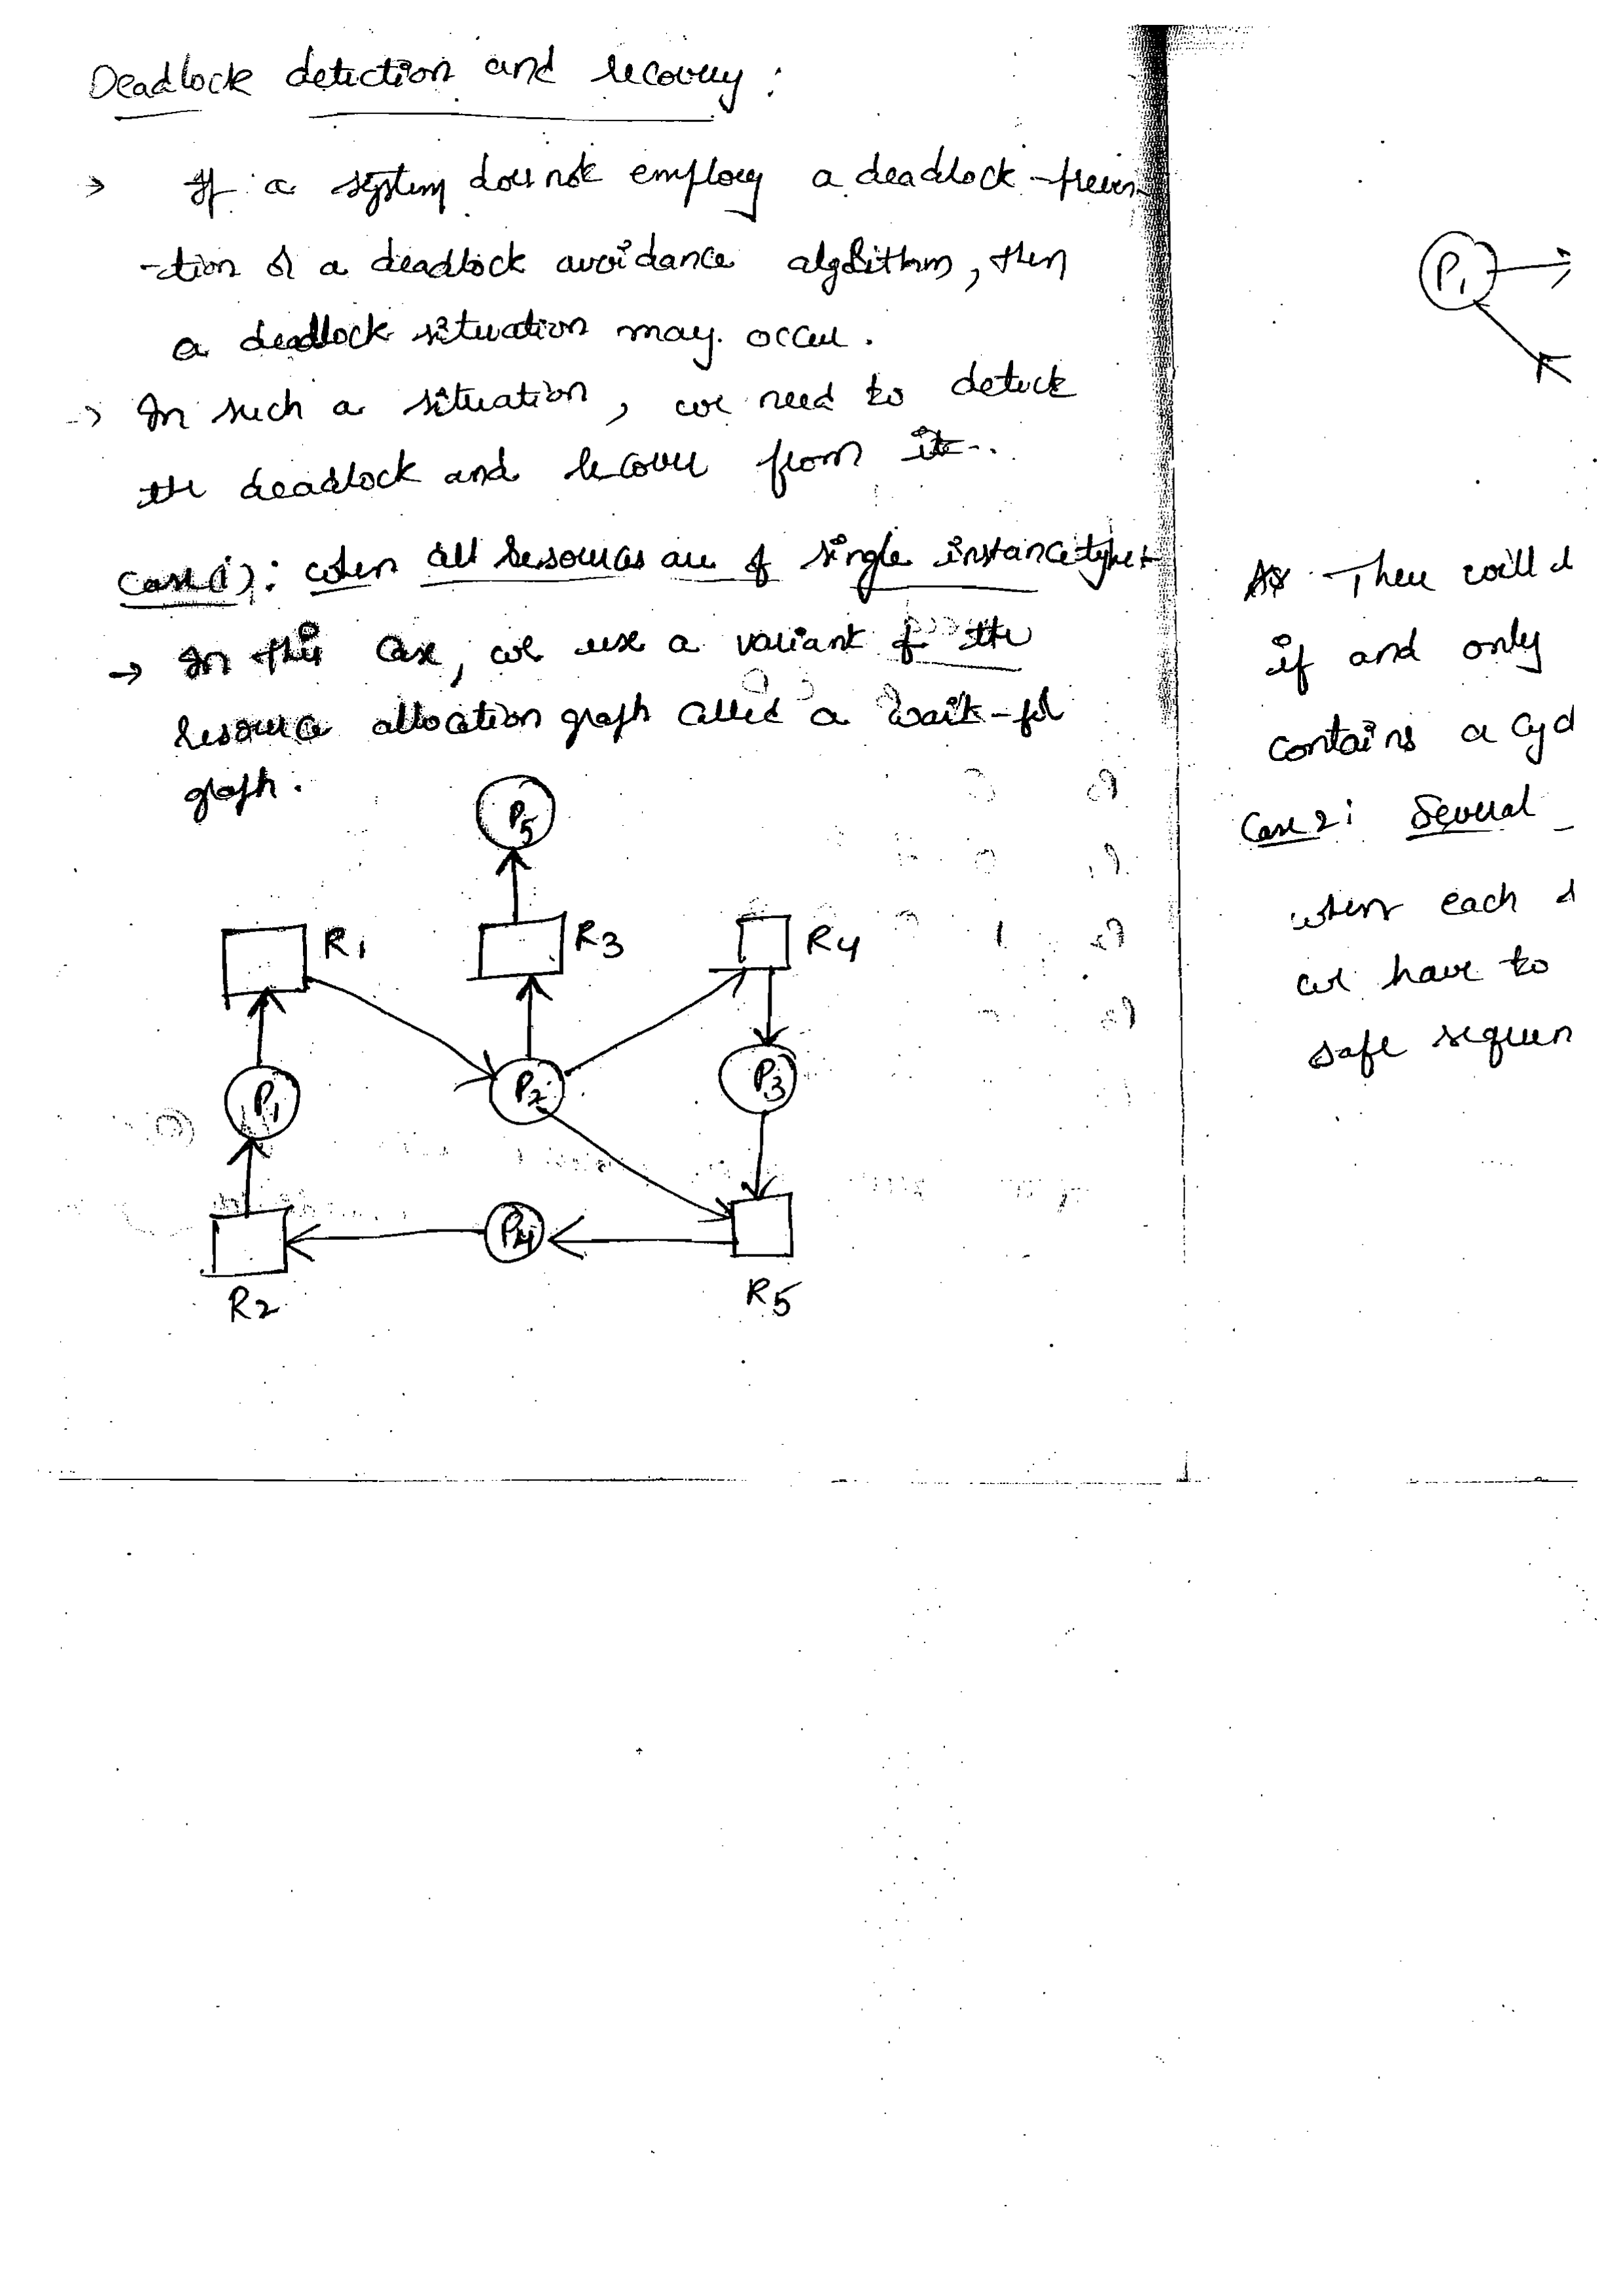 Deadlock detection and recovery:
→ If a system does not employ a deadlock-preven
-tion or a deadlock avoidance algorithm, then
a deadlock situation may occur.
→ In such a situation, we need to detect
the deadlock and recover from it.
Case(i): when all resources are of single instance type
→ In this case, we use a variant of the
resource allocation graph called a wait-for
graph.
P5
R1 R3 R4
P1 P2 P3
P4
R2 R5
P1
There will
if and only
contains a cyc
Case 2: Several
when each
we have to
safe sequen